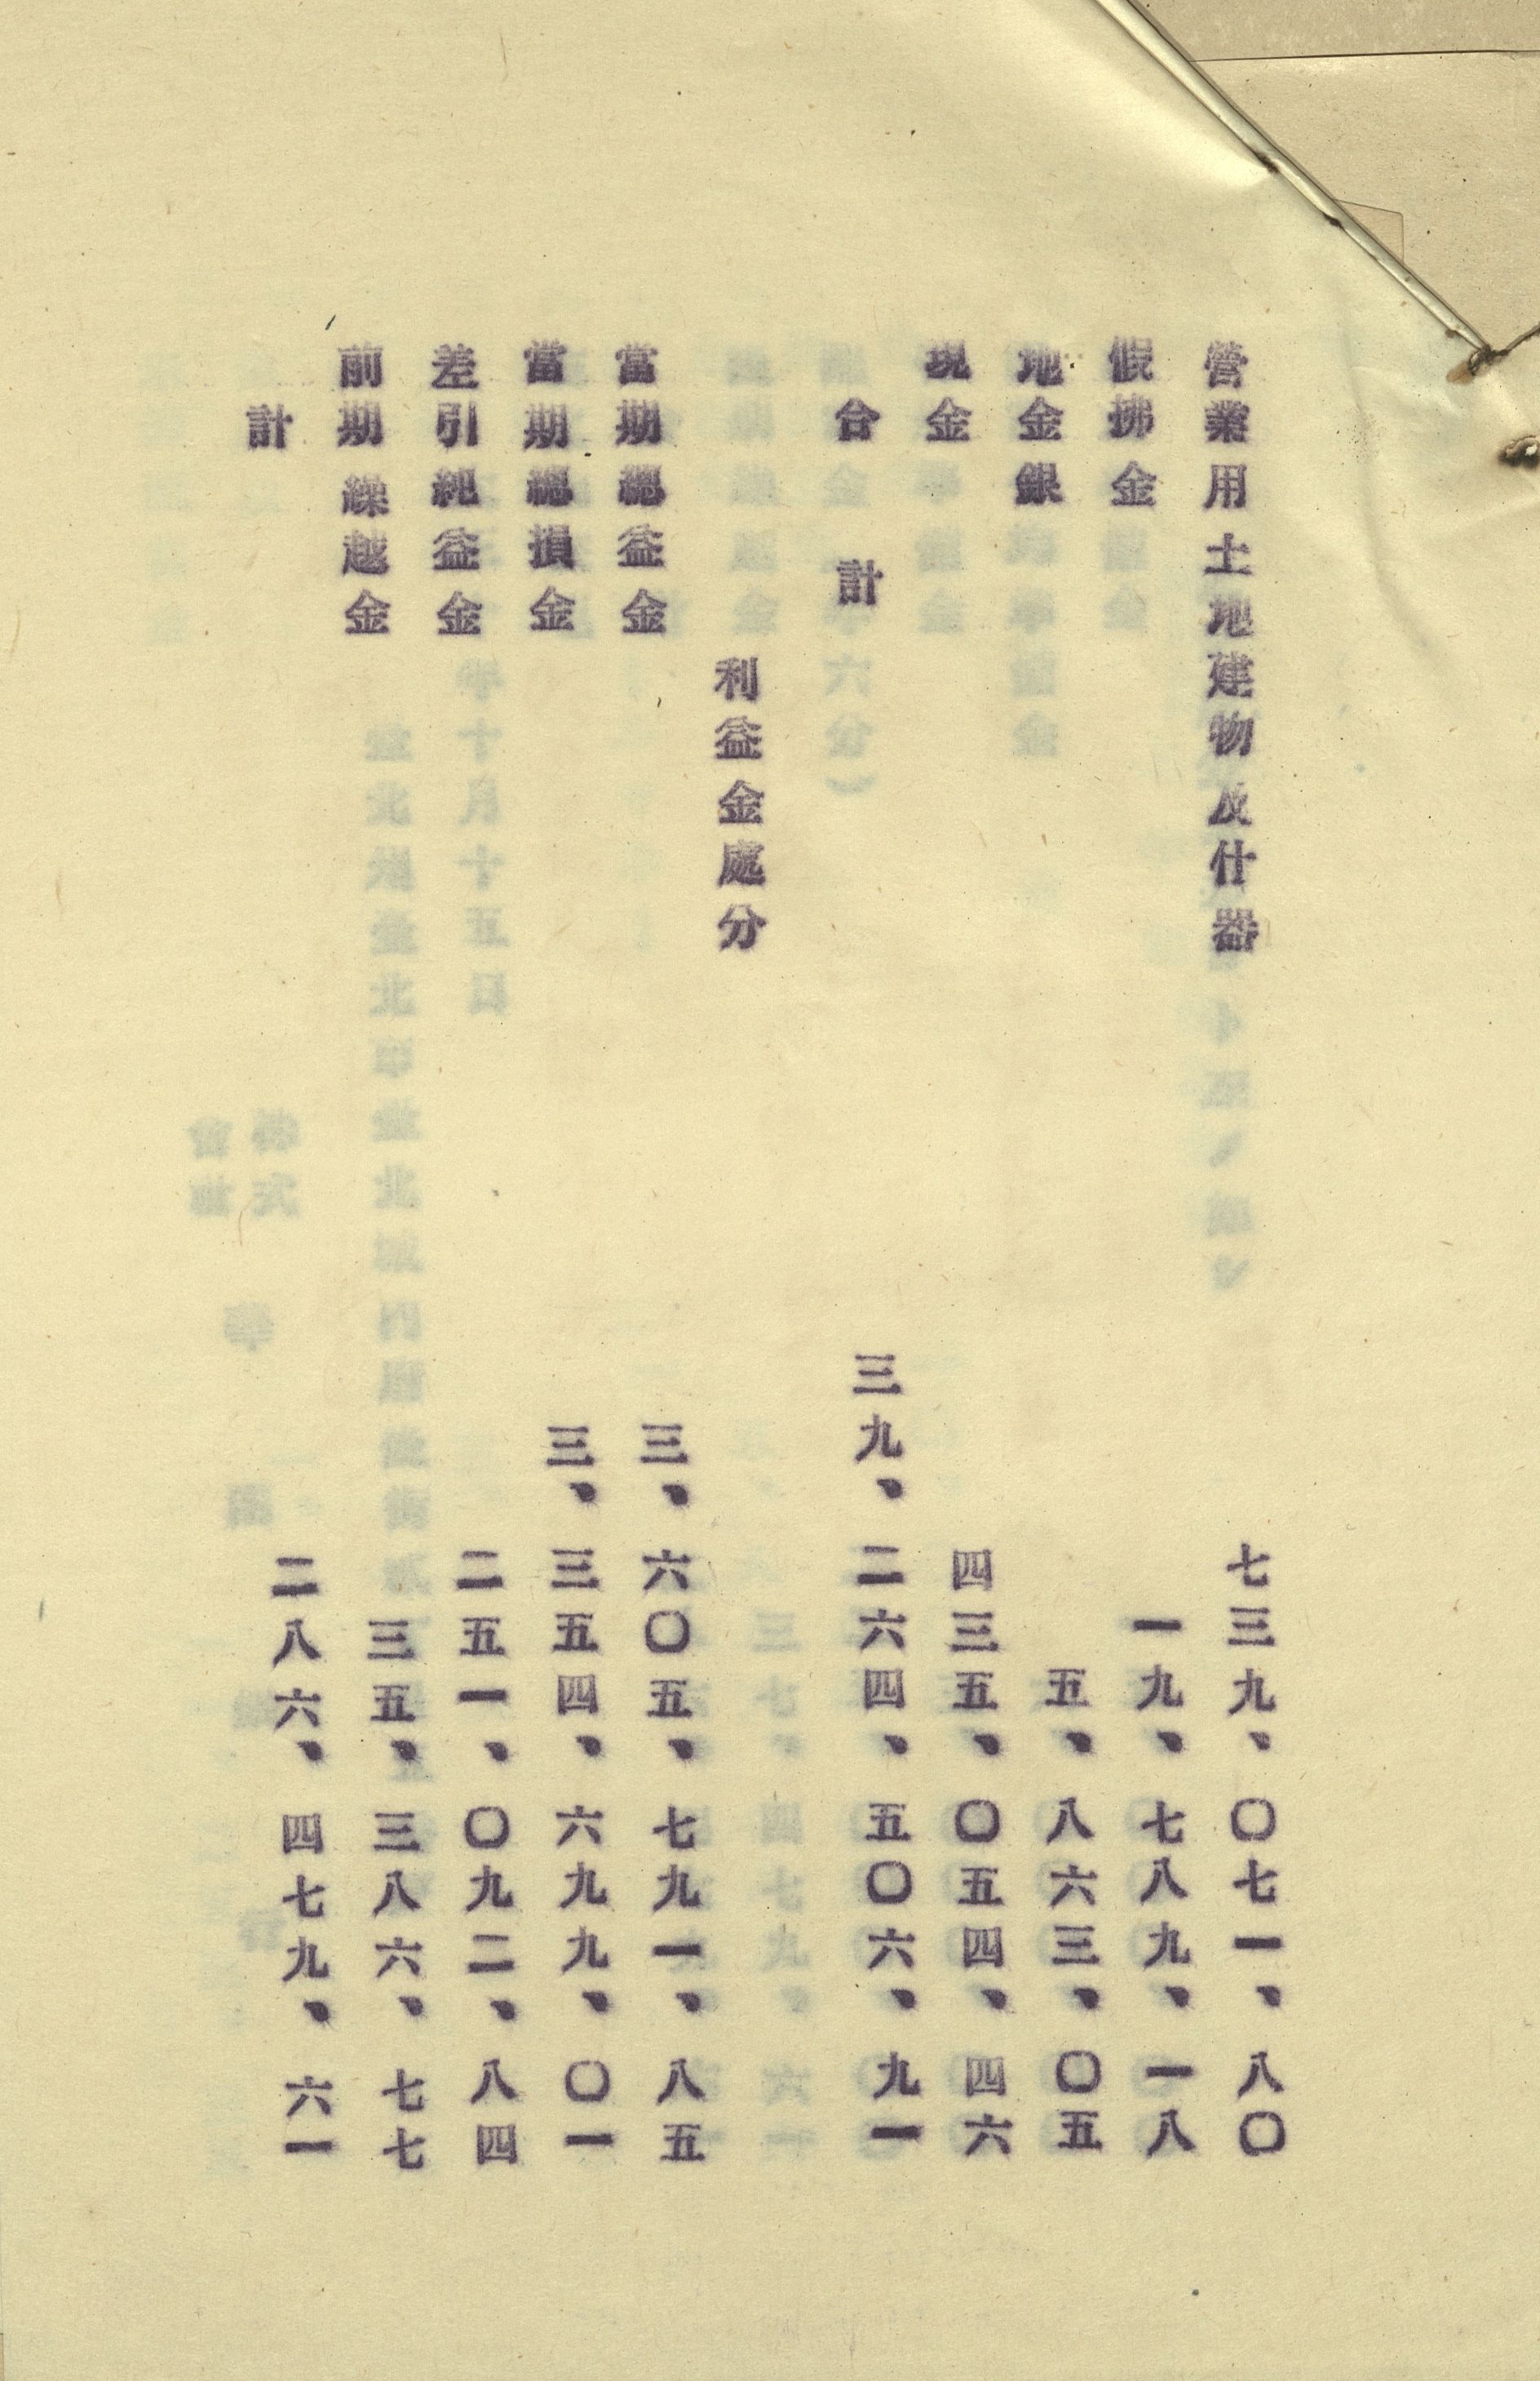 營業用土地建物及什器 七三九、〇七一、八〇
假拂金 一九、七八九、一八
地金銀 五、八六三、〇五
現金 四三五、〇五四、四六
合計 三九、二六四、五〇六、九一
利益金處分
當期總益金 三、六〇五、七九一、八五
當期總損金 三、三五四、六九九、〇一
差引純益金 二五一、〇九二、八四
前期繰越金 三五、三八六、七七
計 二八六、四七九、六一